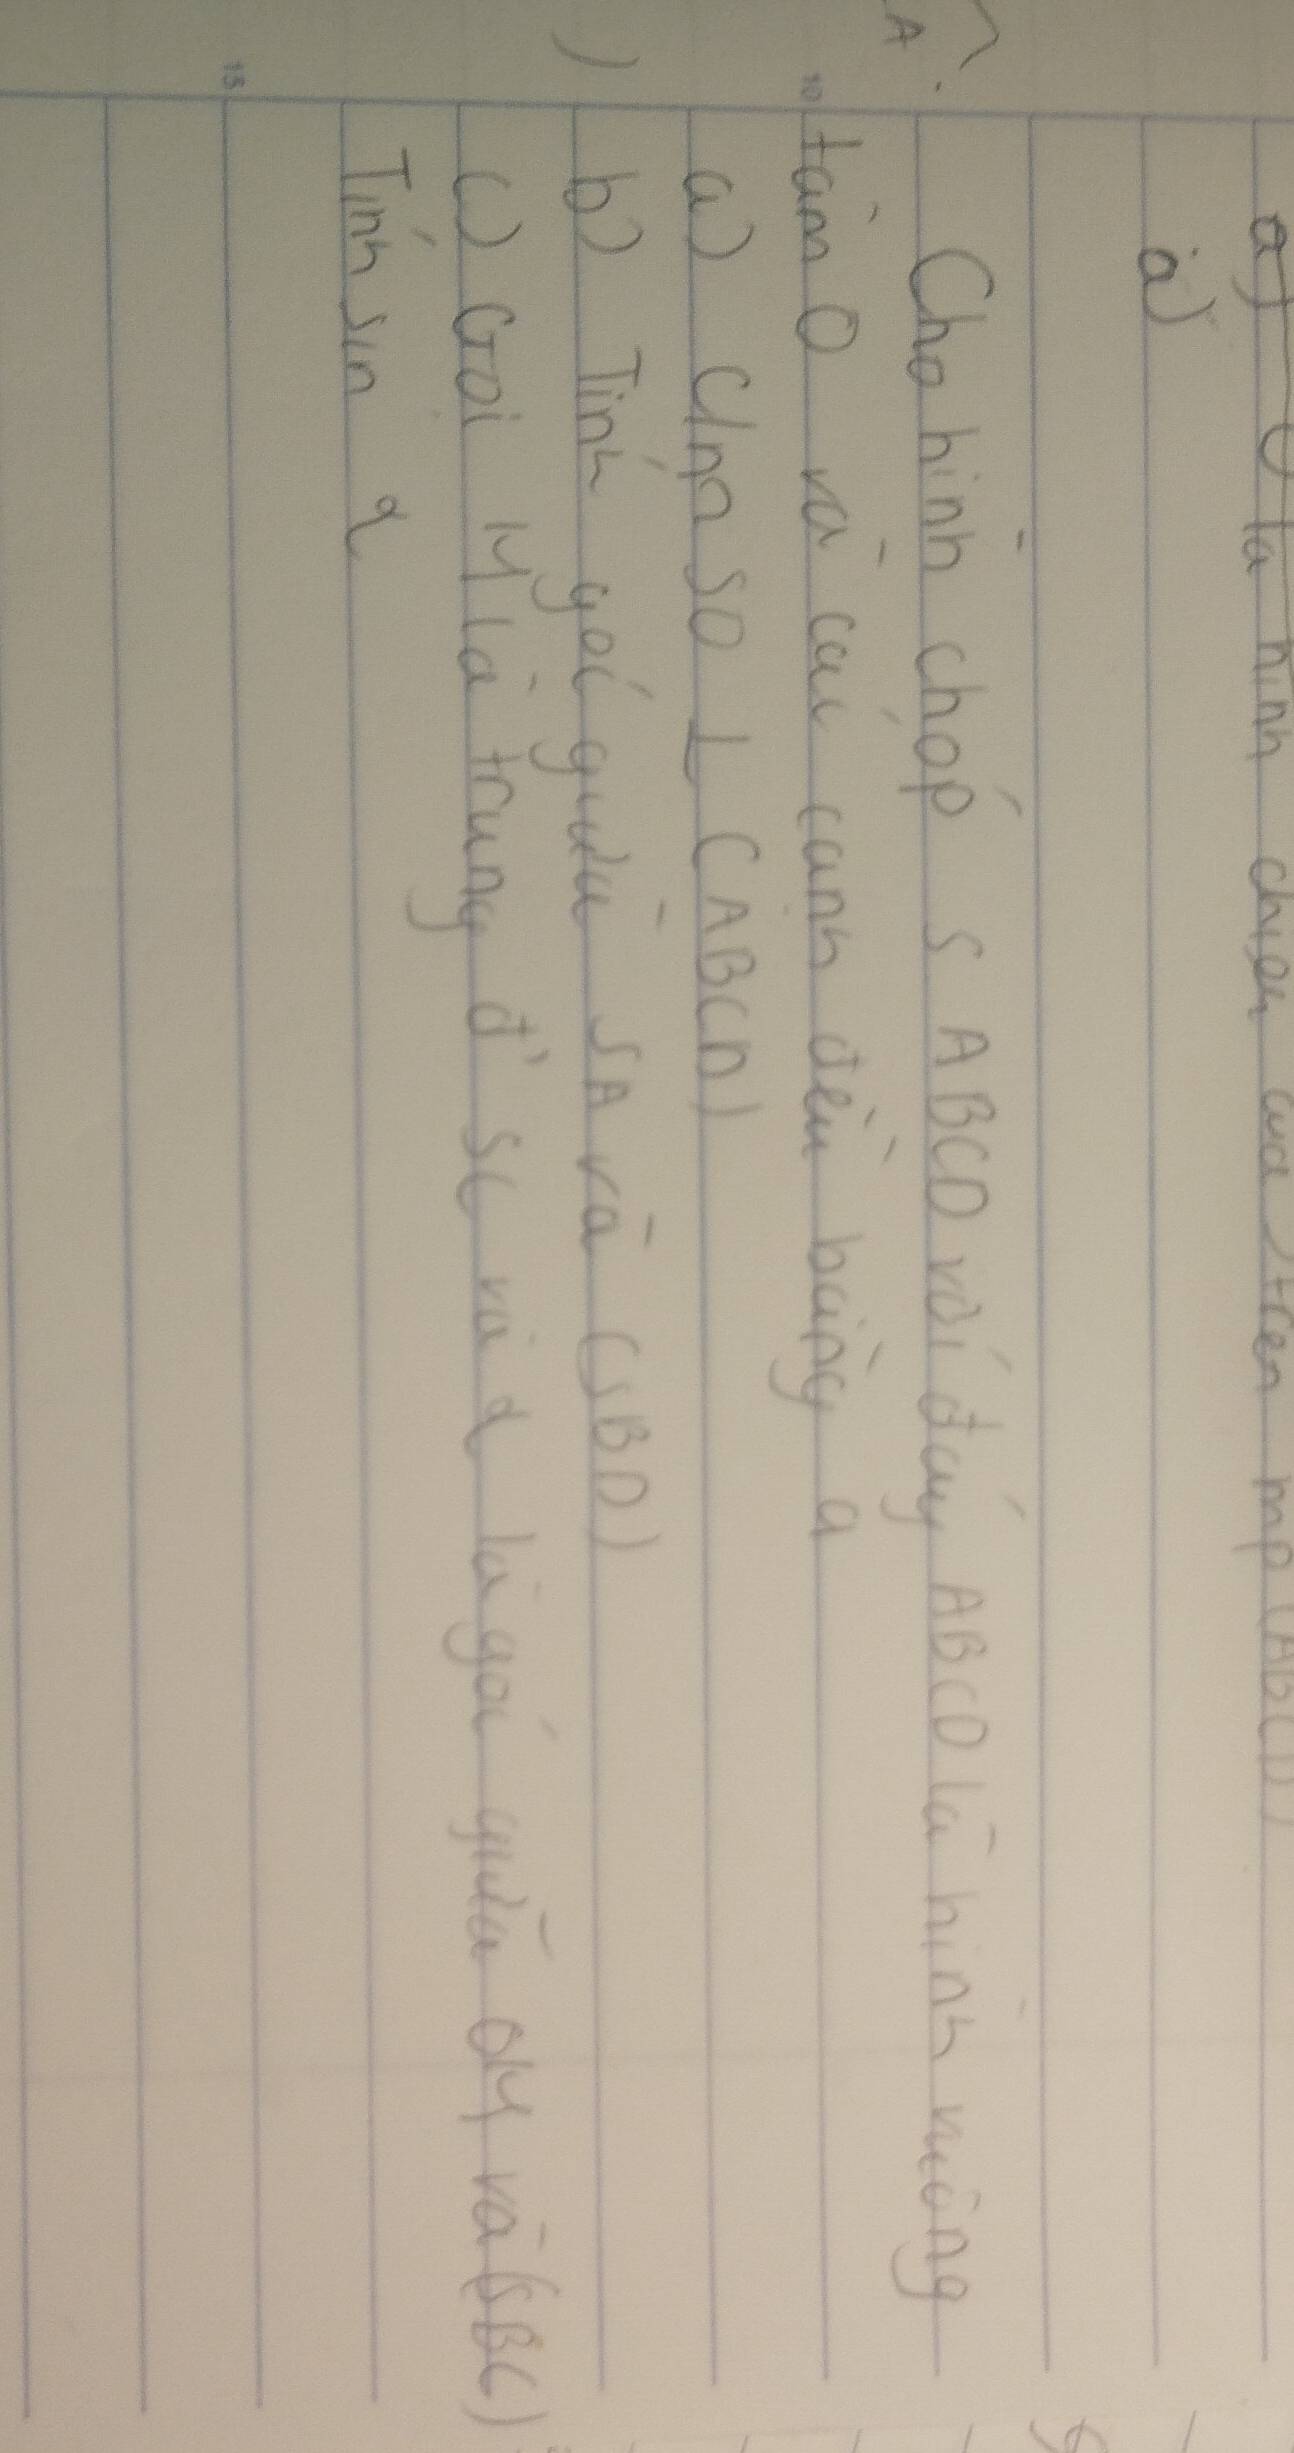 a) O là hình chiếu của S trên mp (ABCD)
a)
Cho hình chóp S ABCD với đáy ABCD là hình vuông
10
tâm O và các cạnh đều bằng a
a) C/m SO ⊥ (ABCD)
b) Tính góc giữa SA và (SBD)
c) Gọi M là trung đ' SC và α là góc giữa OM và (SBC)
Tính sin α
15
A
)